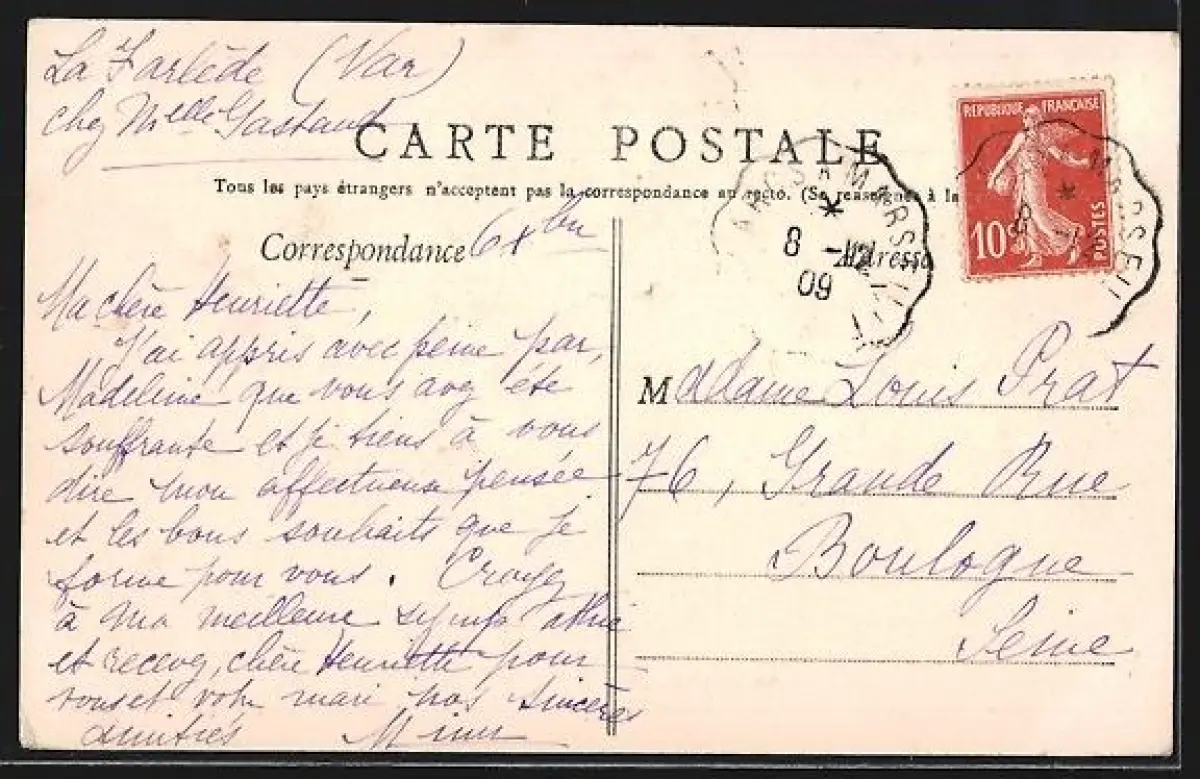 La Farlède (Var)
chez Melle Gastaud
CARTE POSTALE
Tous les pays étrangers n'acceptent pas la correspondance au recto. (Se renseigner à la
Correspondance
6 Xbre
Adresse
Ma chère Henriette,
J'ai appris avec peine par
Madeleine que vous avez été
souffrante et je tiens à vous
dire mon affectueuse pensée
et les bons souhaits que je
forme pour vous. Croyez
à ma meilleure sympathie
et recevez, chère Henriette pour
vous et votre mari nos sincères
amitiés
Madame Louis Prat
76, Grande Rue
Boulogne
Seine
RÉPUBLIQUE FRANÇAISE
10c
POSTES
MARSEILL
8 -12
09
MARSEILL